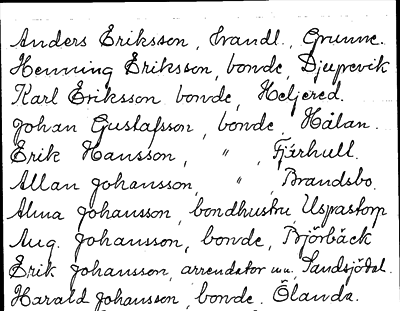 Anders Eriksson, handl., Grunne.
Henning Eriksson, bonde, Djupevik
Karl Eriksson bonde, Heljered.
Johan Gustafsson, bonde, Hålan.
Erik Hansson, " , Fjärhull.
Allan Johansson, " , Brandsbo.
Alma Johansson, bondhustru Uspastorp
Aug. Johansson, bonde, Björbäck
Erik Johansson, arrendator Sandsjödal.
Harald Johansson, bonde. Ölanda.